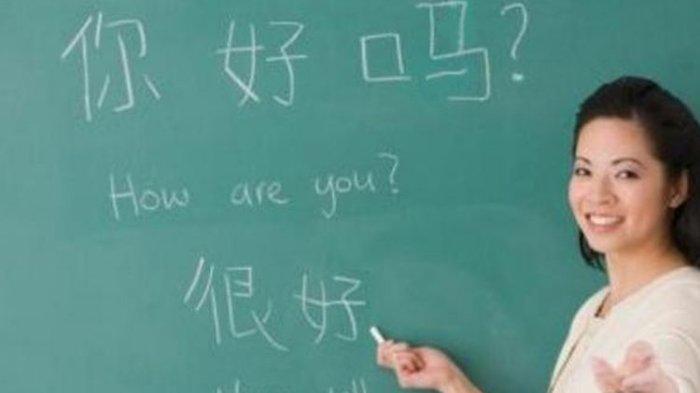 你好吗?
How are you?
很好